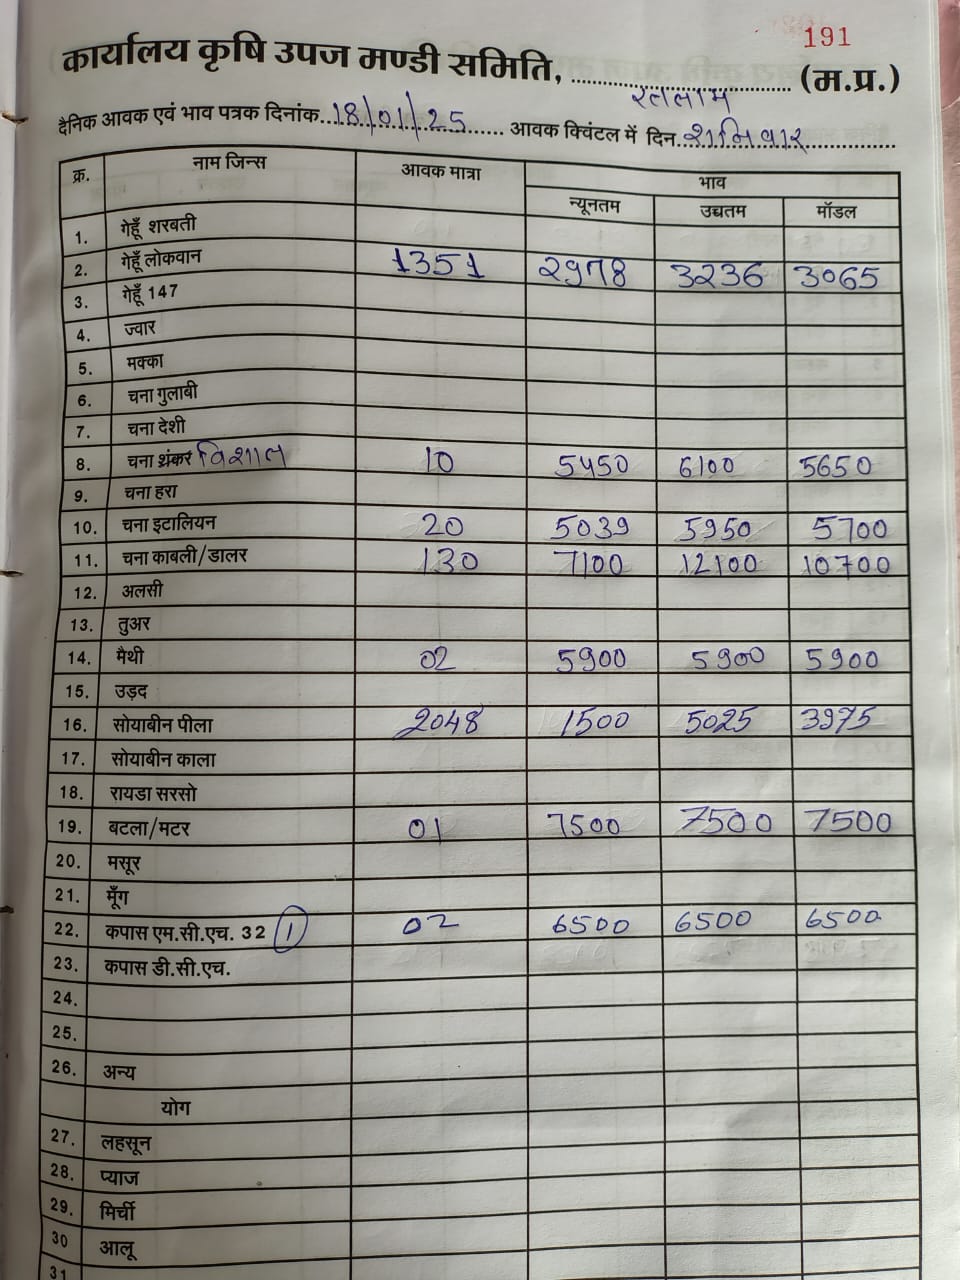 191
कार्यालय कृषि उपज मण्डी समिति, रतलाम (म.प्र.)
दैनिक आवक एवं भाव पत्रक दिनांक 18/01/25 आवक क्विंटल में दिन शनिवार
क्र. नाम जिन्स आवक मात्रा भाव
न्यूनतम उच्चतम मॉडल
1. गेहूँ शरबती
2. गेहूँ लोकवान 1351 2978 3236 3065
3. गेहूँ 147
4. ज्वार
5. मक्का
6. चना गुलाबी
7. चना देशी
8. चना शंकर विशाल 10 5450 6100 5650
9. चना हरा
10. चना इटालियन 20 5039 5950 5700
11. चना काबली/डालर 130 7100 12100 10700
12. अलसी
13. तुअर
14. मैथी 02 5900 5900 5900
15. उड़द
16. सोयाबीन पीला 2048 1500 5025 3975
17. सोयाबीन काला
18. रायडा सरसो
19. बटला/मटर 01 7500 7500 7500
20. मसूर
21. मूँग
22. कपास एम.सी.एच. 32 1 02 6500 6500 6500
23. कपास डी.सी.एच.
24.
25.
26. अन्य
योग
27. लहसून
28. प्याज
29. मिर्ची
30 आलू
31